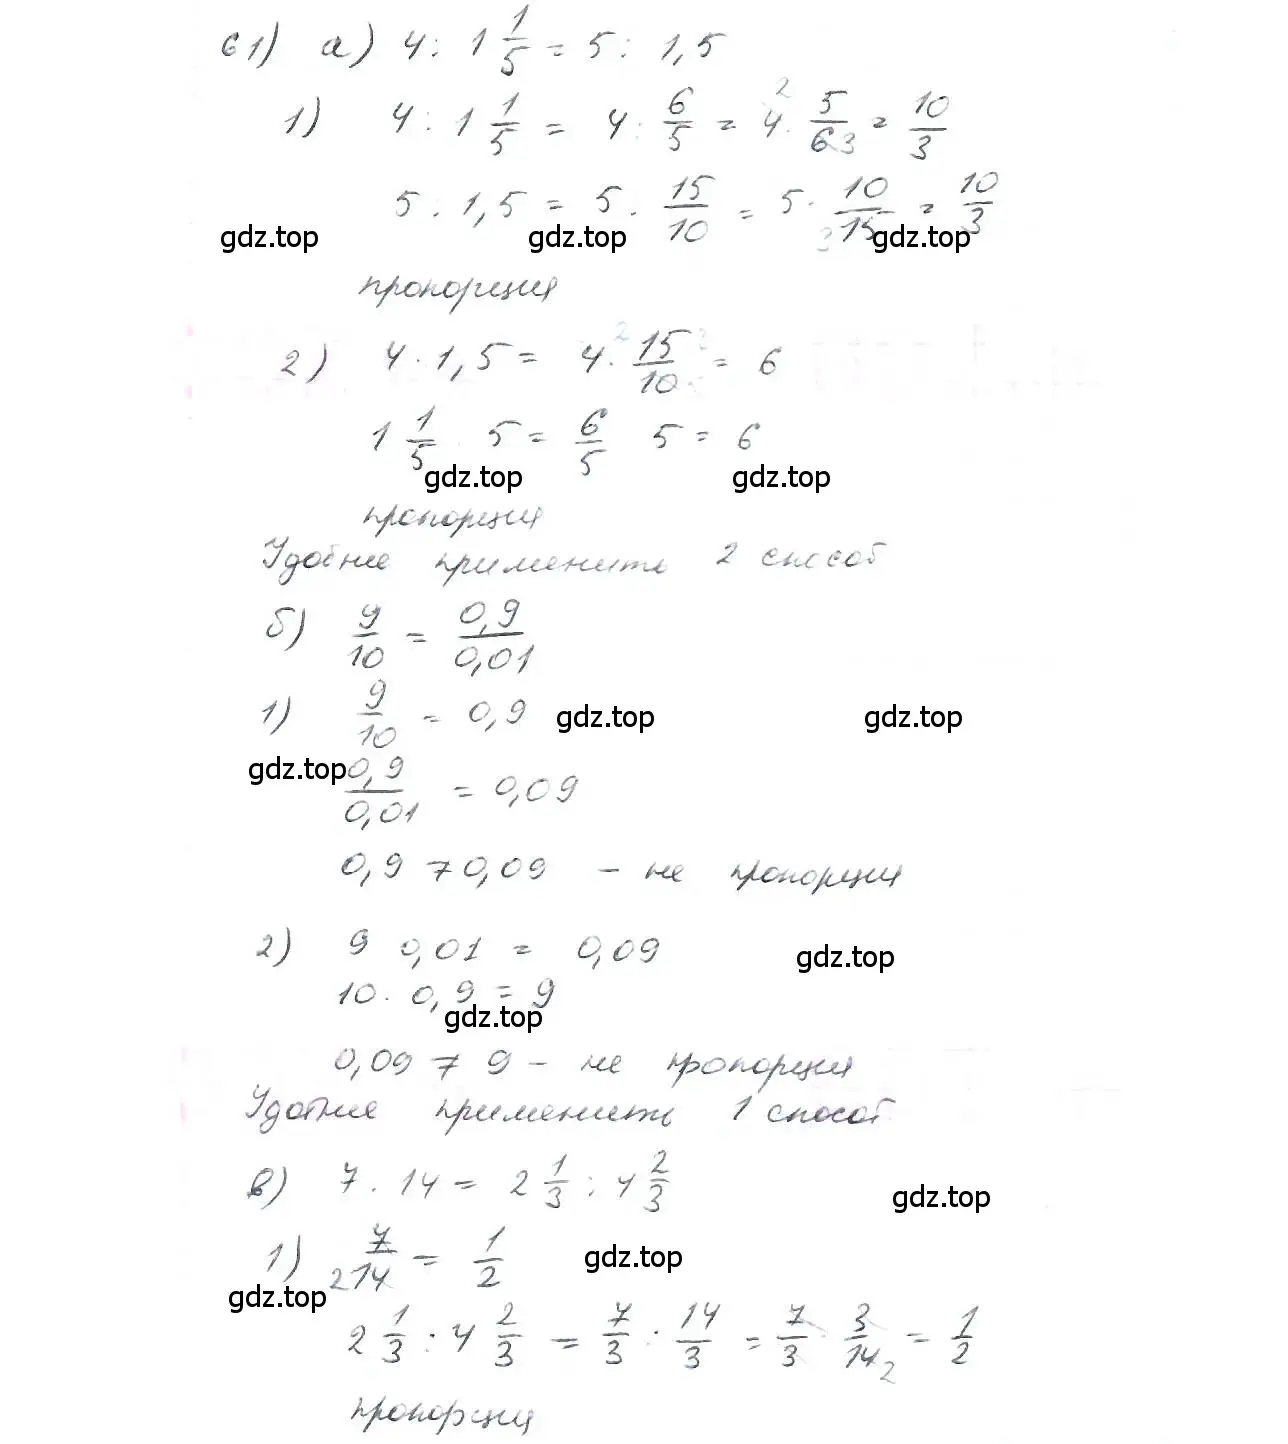 61) а) 4 : 1 1/5 = 5 : 1,5
1) 4 : 1 1/5 = 4 : 6/5 = 4 · 5/6 = 10/3
5 : 1,5 = 5 : 15/10 = 5 · 10/15 = 10/3
gdz.top gdz.top gdz.top
пропорция
2) 4 · 1,5 = 4 · 15/10 = 6
1 1/5 · 5 = 6/5 5 = 6
gdz.top gdz.top
пропорция
Удобнее применить 2 способ
б) 9/10 = 0,9/0,01
1) 9/10 = 0,9 gdz.top gdz.top
gdz.top 0,9/0,01 = 0,09
0,9 ≠ 0,09 – не пропорция
2) 9 0,01 = 0,09 gdz.top
10 · 0,9 = 9
gdz.top
0,09 ≠ 9 – не пропорция
Удобнее применить 1 способ
в) 7 : 14 = 2 1/3 : 4 2/3
gdz.top
1) 7/14 = 1/2 gdz.top
gdz.top
2 1/3 : 4 2/3 = 7/3 : 14/3 = 7/3 · 3/14 = 1/2
пропорция